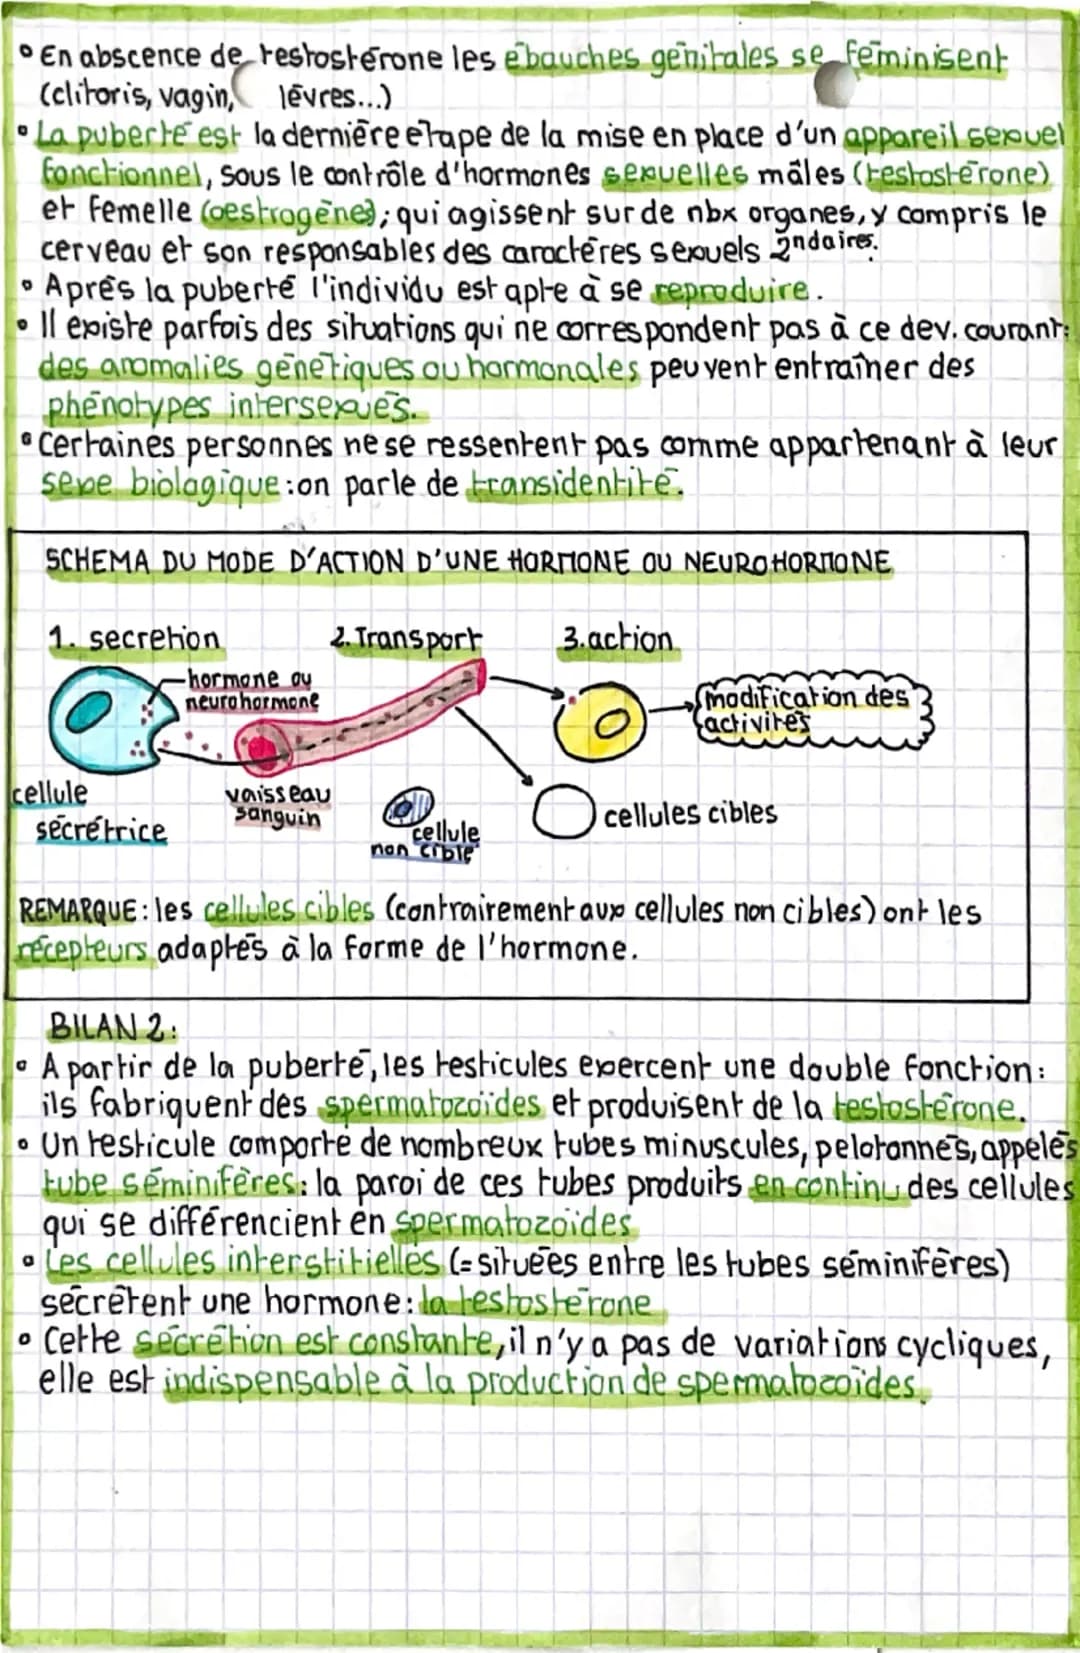 ° En abscence de testostérone les ébauches génitales se féminisent
(clitoris, vagin, lèvres...)
° La puberté est la dernière etape de la mise en place d'un appareil sexuel
fonctionnel, sous le contrôle d'hormones sexuelles mâles (testostérone)
et femelle (oestrogènes); qui agissent sur de nbx organes, y compris le
cerveau et son responsables des caractères sexuels 2ndaires.
° Après la puberté l'individu est apte à se reproduire.
° Il existe parfois des situations qui ne correspondent pas à ce dev. courant:
des anomalies génétiques ou hormonales peuvent entraîner des
phénotypes intersexués.
° Certaines personnes ne se ressentent pas comme appartenant à leur
sexe biologique : on parle de transidentité.
SCHEMA DU MODE D'ACTION D'UNE HORMONE OU NEUROHORMONE
1. secretion 2. Transport 3. action
hormone ou
neurohormone
modification des
activités
cellule
sécrétrice
vaisseau
sanguin
cellule
non cible
cellules cibles
REMARQUE : les cellules cibles (contrairement aux cellules non cibles) ont les
récepteurs adaptés à la forme de l'hormone.
BILAN 2 :
° A partir de la puberté, les testicules exercent une double fonction :
ils fabriquent des spermatozoïdes et produisent de la testostérone.
° Un testicule comporte de nombreux tubes minuscules, pelotonnés, appelés
tube séminifères : la paroi de ces tubes produits en continu des cellules
qui se différencient en spermatozoïdes
° Les cellules interstitielles (= situées entre les tubes séminifères)
sécrètent une hormone : la testostérone
° Cette sécrétion est constante, il n'y a pas de variations cycliques,
elle est indispensable à la production de spermatozoïdes.